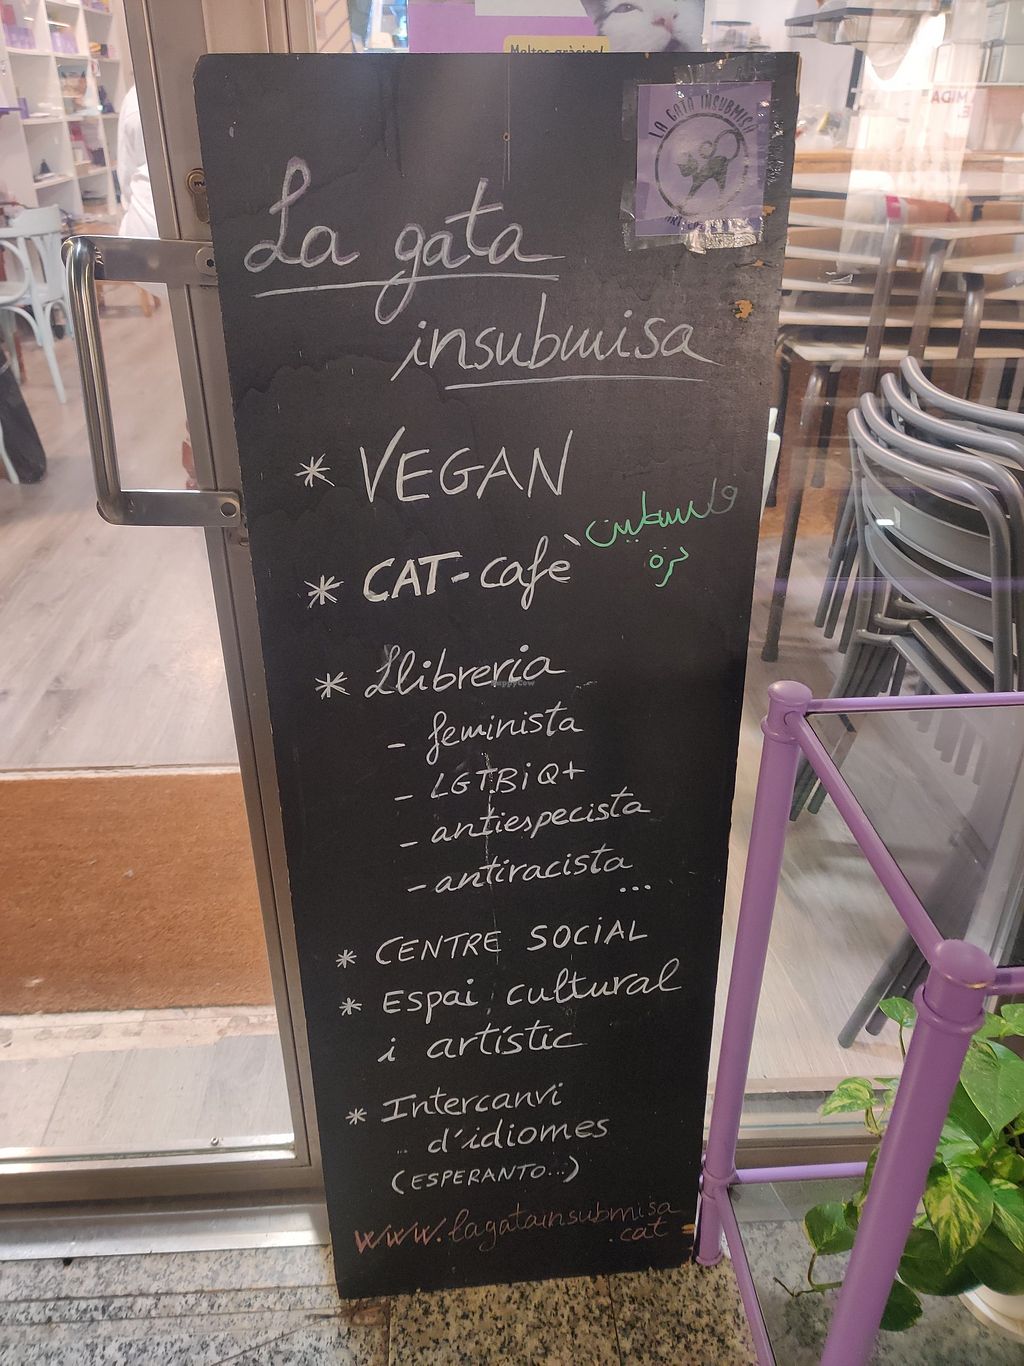 Moltes gràcies!
LA GATA INSUBMISA
MIDA
La gata
insubmisa
* VEGAN
فلسطين
حرة
* CAT-cafè
* Llibreria
- feminista
- LGTBiQ+
- antiespecista
- antiracista
...
* CENTRE SOCIAL
* Espai cultural
i artístic
* Intercanvi
d'idiomes
(ESPERANTO...)
www.lagatainsubmisa
.cat